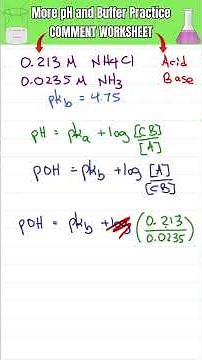 More pH and Buffer Practice
COMMENT WORKSHEET
0.213 M NH4Cl Acid
0.0235 M NH3 Base
pkb = 4.75
pH = pka + log [CB]/[A]
pOH = pkb + log [A]/[CB]
pOH = pkb + log (0.213/0.0235)